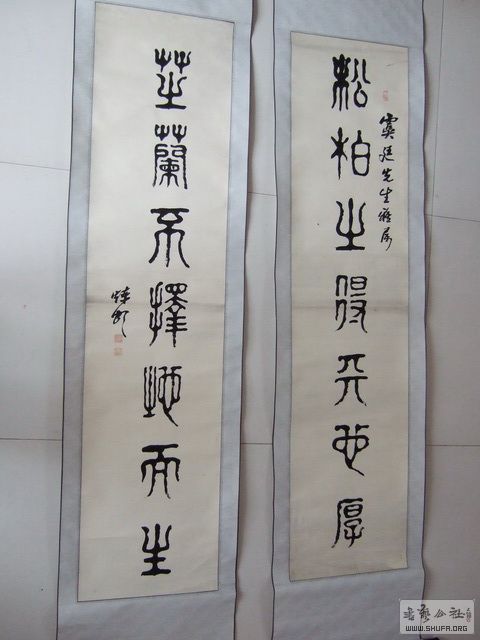 松柏之得天也厚
虞廷先生雅属
芝蘭不擇地而生
書藝公社
WWW.SHUFA.ORG